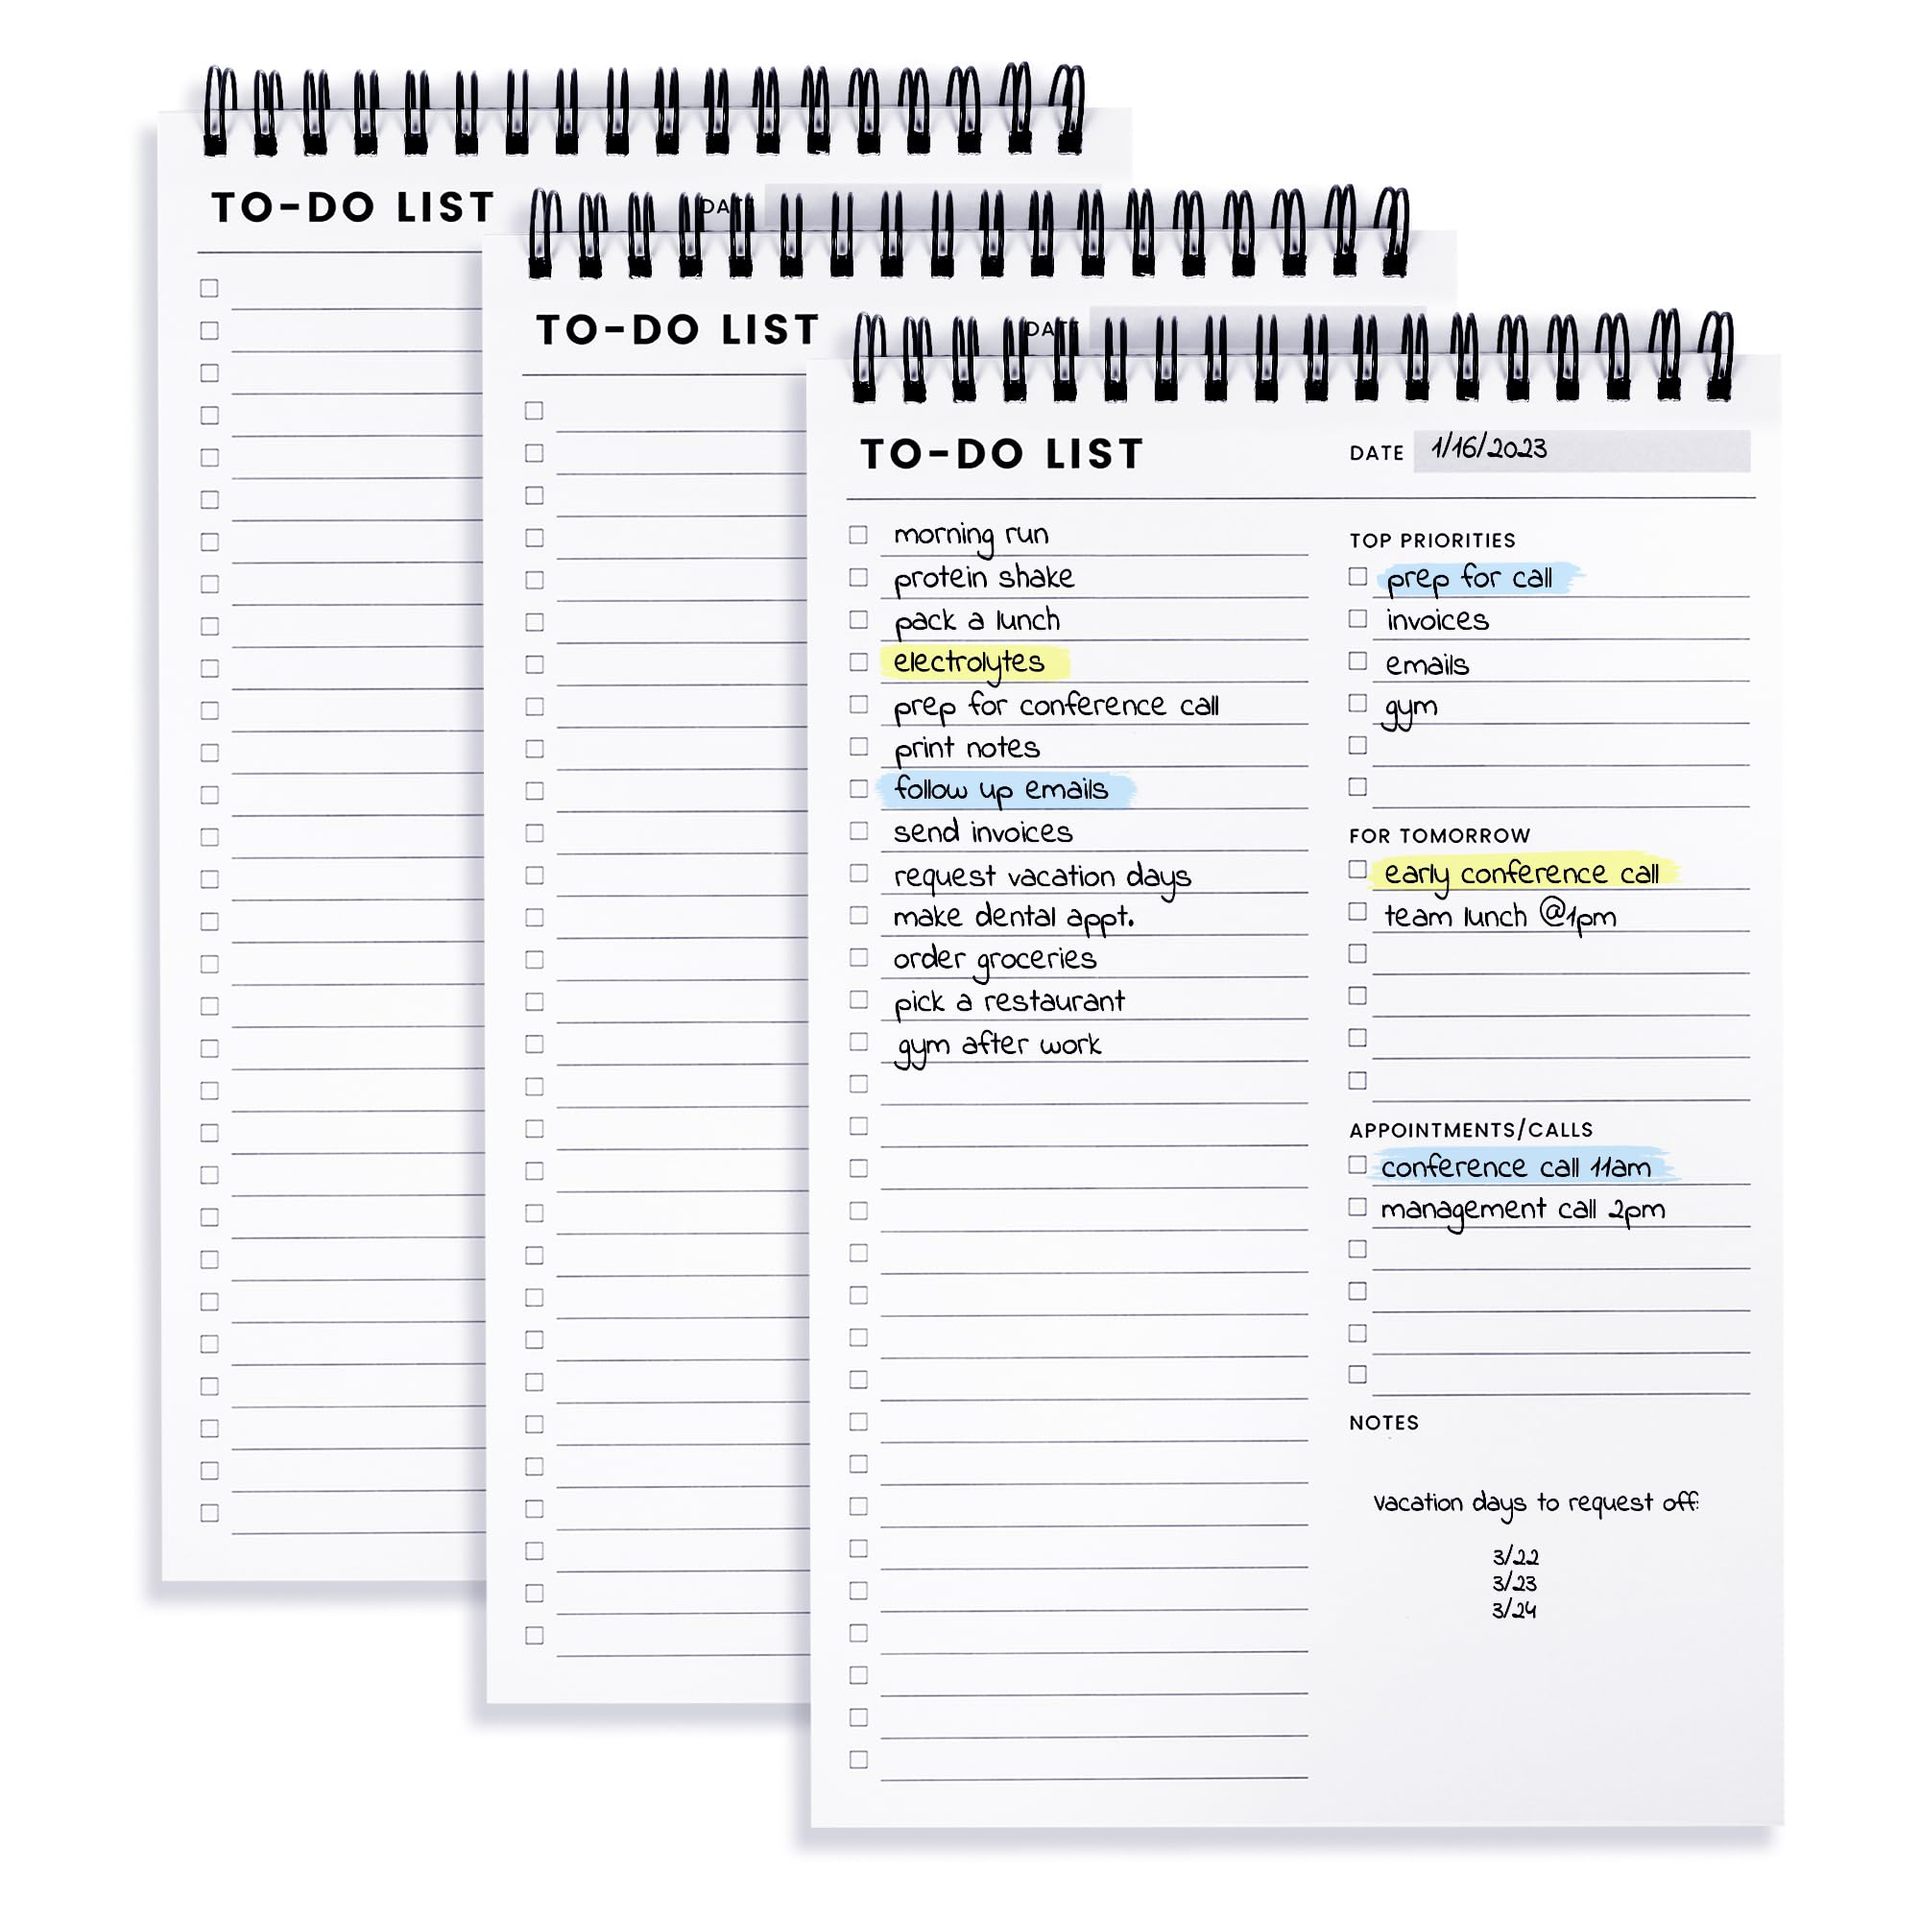 TO-DO LIST
TO-DO LIST
TO-DO LIST
DATE 1/16/2023
morning run
protein shake
pack a lunch
electrolytes
prep for conference call
print notes
follow up emails
send invoices
request vacation days
make dental appt.
order groceries
pick a restaurant
gym after work
TOP PRIORITIES
prep for call
invoices
emails
gym
FOR TOMORROW
early conference call
team lunch @1pm
APPOINTMENTS/CALLS
conference call 11am
management call 2pm
NOTES
vacation days to request off:
3/22
3/23
3/24